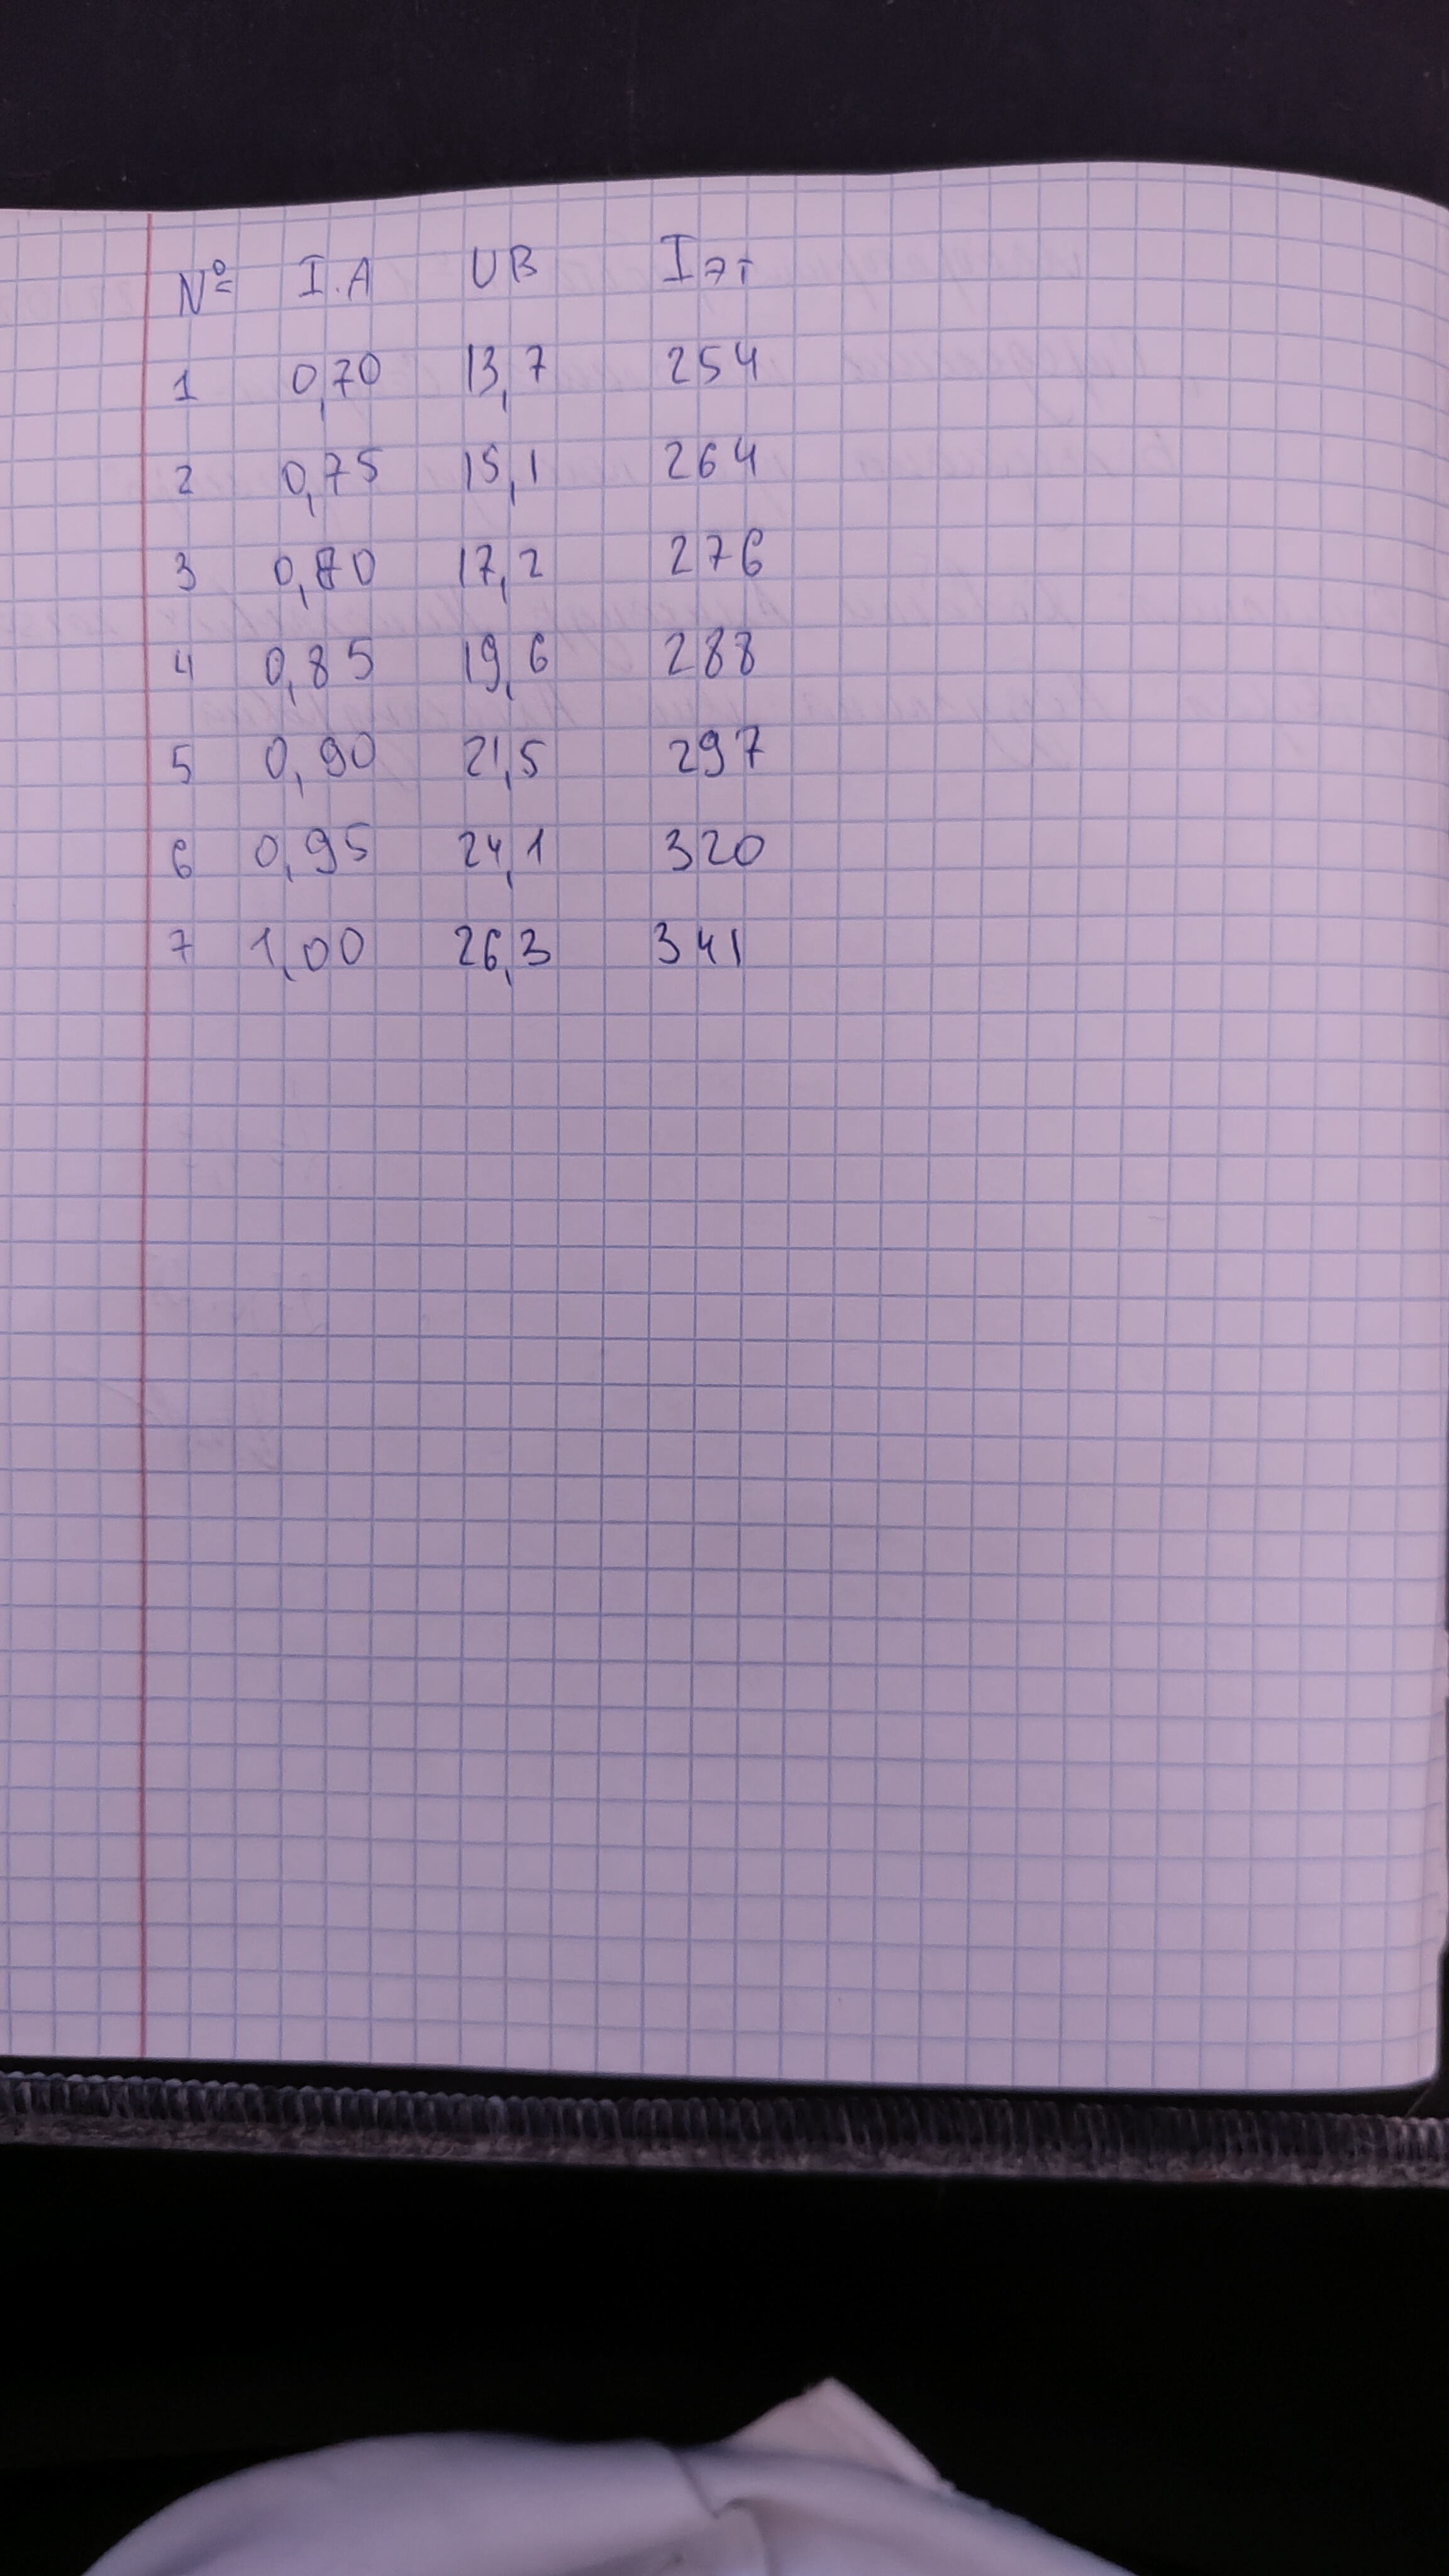 № I.A UB Iэт
1 0,70 13,7 254
2 0,75 15,1 264
3 0,80 17,2 276
4 0,85 19,6 288
5 0,90 21,5 297
6 0,95 24,1 320
7 1,00 26,3 341